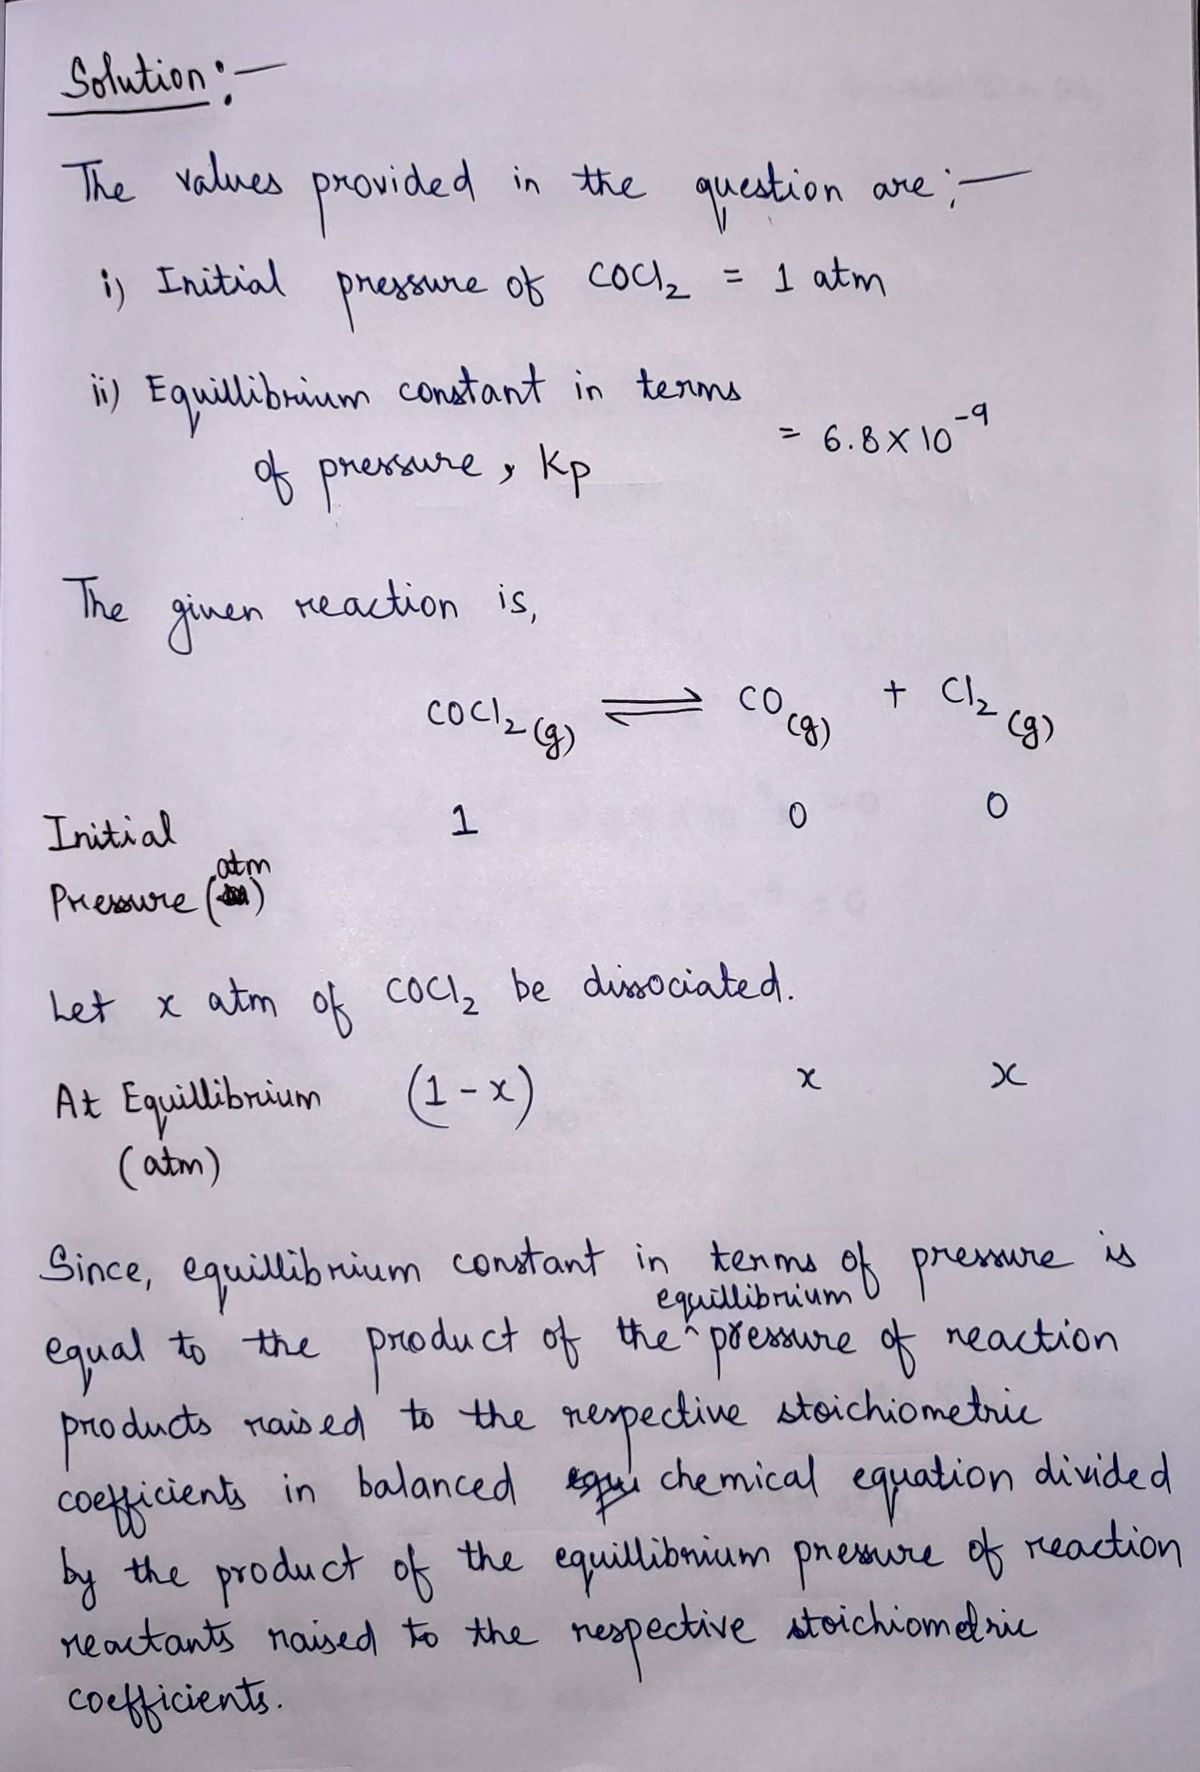 Solution :-
The values provided in the question are :-
i) Initial pressure of COCl₂ = 1 atm
ii) Equillibrium constant in terms
of pressure, Kp = 6.8 X 10⁻⁹
The given reaction is,
COCl₂ (g) ⇌ CO (g) + Cl₂ (g)
Initial 1 0 0
Pressure (atm)
Let x atm of COCl₂ be dissociated.
At Equillibrium (1 - x) x x
(atm)
Since, equillibrium constant in terms of pressure is
equal to the equillibrium product of the ^ pressure of reaction
products raised to the respective stoichiometric
coefficients in balanced chemical equation divided
by the product of the equillibrium pressure of reaction
reactants raised to the respective stoichiometric
coefficients.